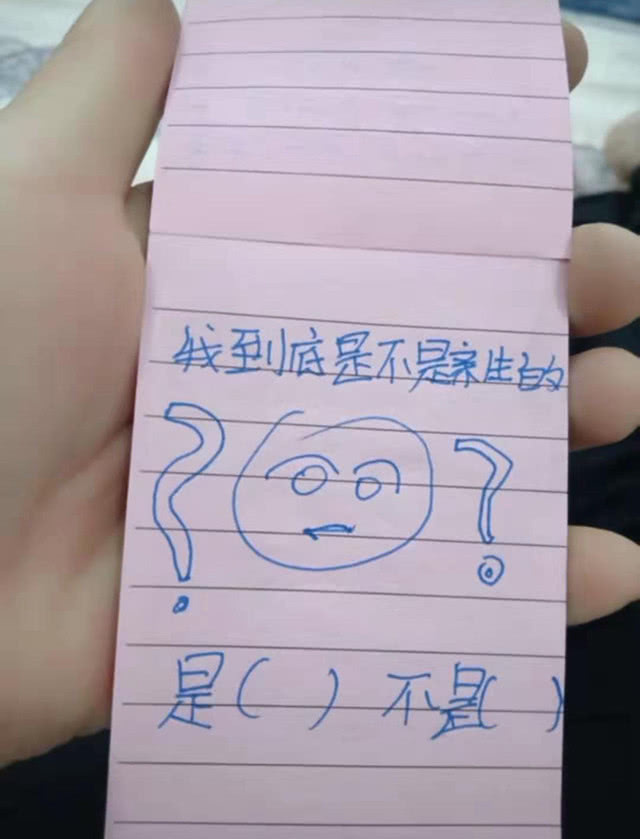 我到底是不是亲生的
? ?
是( ) 不是( )